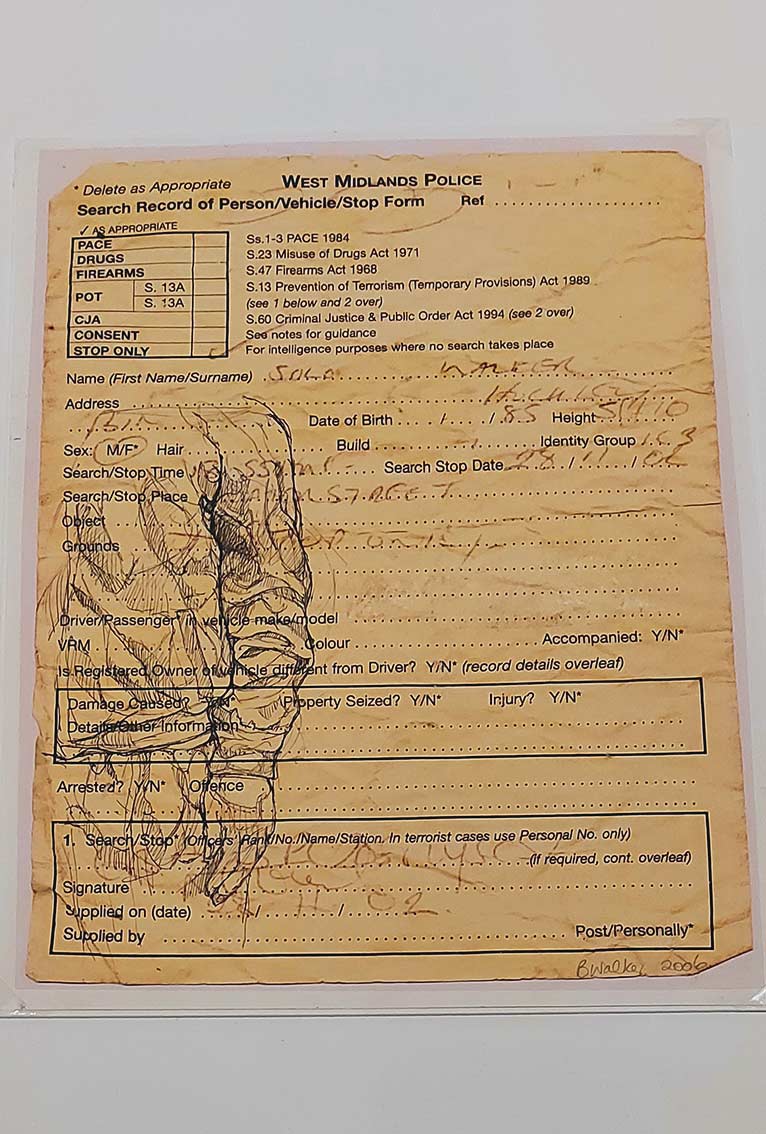 * Delete as Appropriate
WEST MIDLANDS POLICE
Search Record of Person/Vehicle/Stop Form Ref ....................
✓ AS APPROPRIATE
PACE Ss.1-3 PACE 1984
DRUGS S.23 Misuse of Drugs Act 1971
FIREARMS S.47 Firearms Act 1968
POT S. 13A S.13 Prevention of Terrorism (Temporary Provisions) Act 1989
S. 13A (see 1 below and 2 over)
CJA S.60 Criminal Justice & Public Order Act 1994 (see 2 over)
CONSENT See notes for guidance
STOP ONLY For intelligence purposes where no search takes place
Name (First Name/Surname) WALKER
Address
Date of Birth ..../..../.85 Height 5ft 10
Sex: M/F* Hair Build Identity Group I.C.3
Search/Stop Time Search Stop Date 28/11/02
Search/Stop Place STREET
Object
Grounds STOP ONLY
Driver/Passenger* in vehicle make/model
VRM Colour Accompanied: Y/N*
Is Registered Owner of vehicle different from Driver? Y/N* (record details overleaf)
Damage Caused? Y/N* Property Seized? Y/N* Injury? Y/N*
Details/Other Information
Arrested? Y/N* Offence
1. Search/Stop* (Officers' Rank/No./Name/Station. In terrorist cases use Personal No. only)
(If required, cont. overleaf)
Signature
Supplied on (date) / 11 / 02
Supplied by Post/Personally*
BWalker 2006